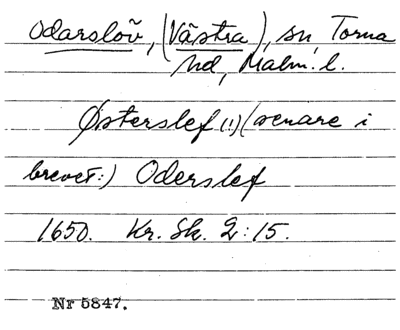 Odarslöv, (Västra), sn, Torna
hd, Malm. l.
Østerslef (!) (senare i
brevet:) Oderslef
1650. Kr. Sk. 2:15.
Nr 5847.